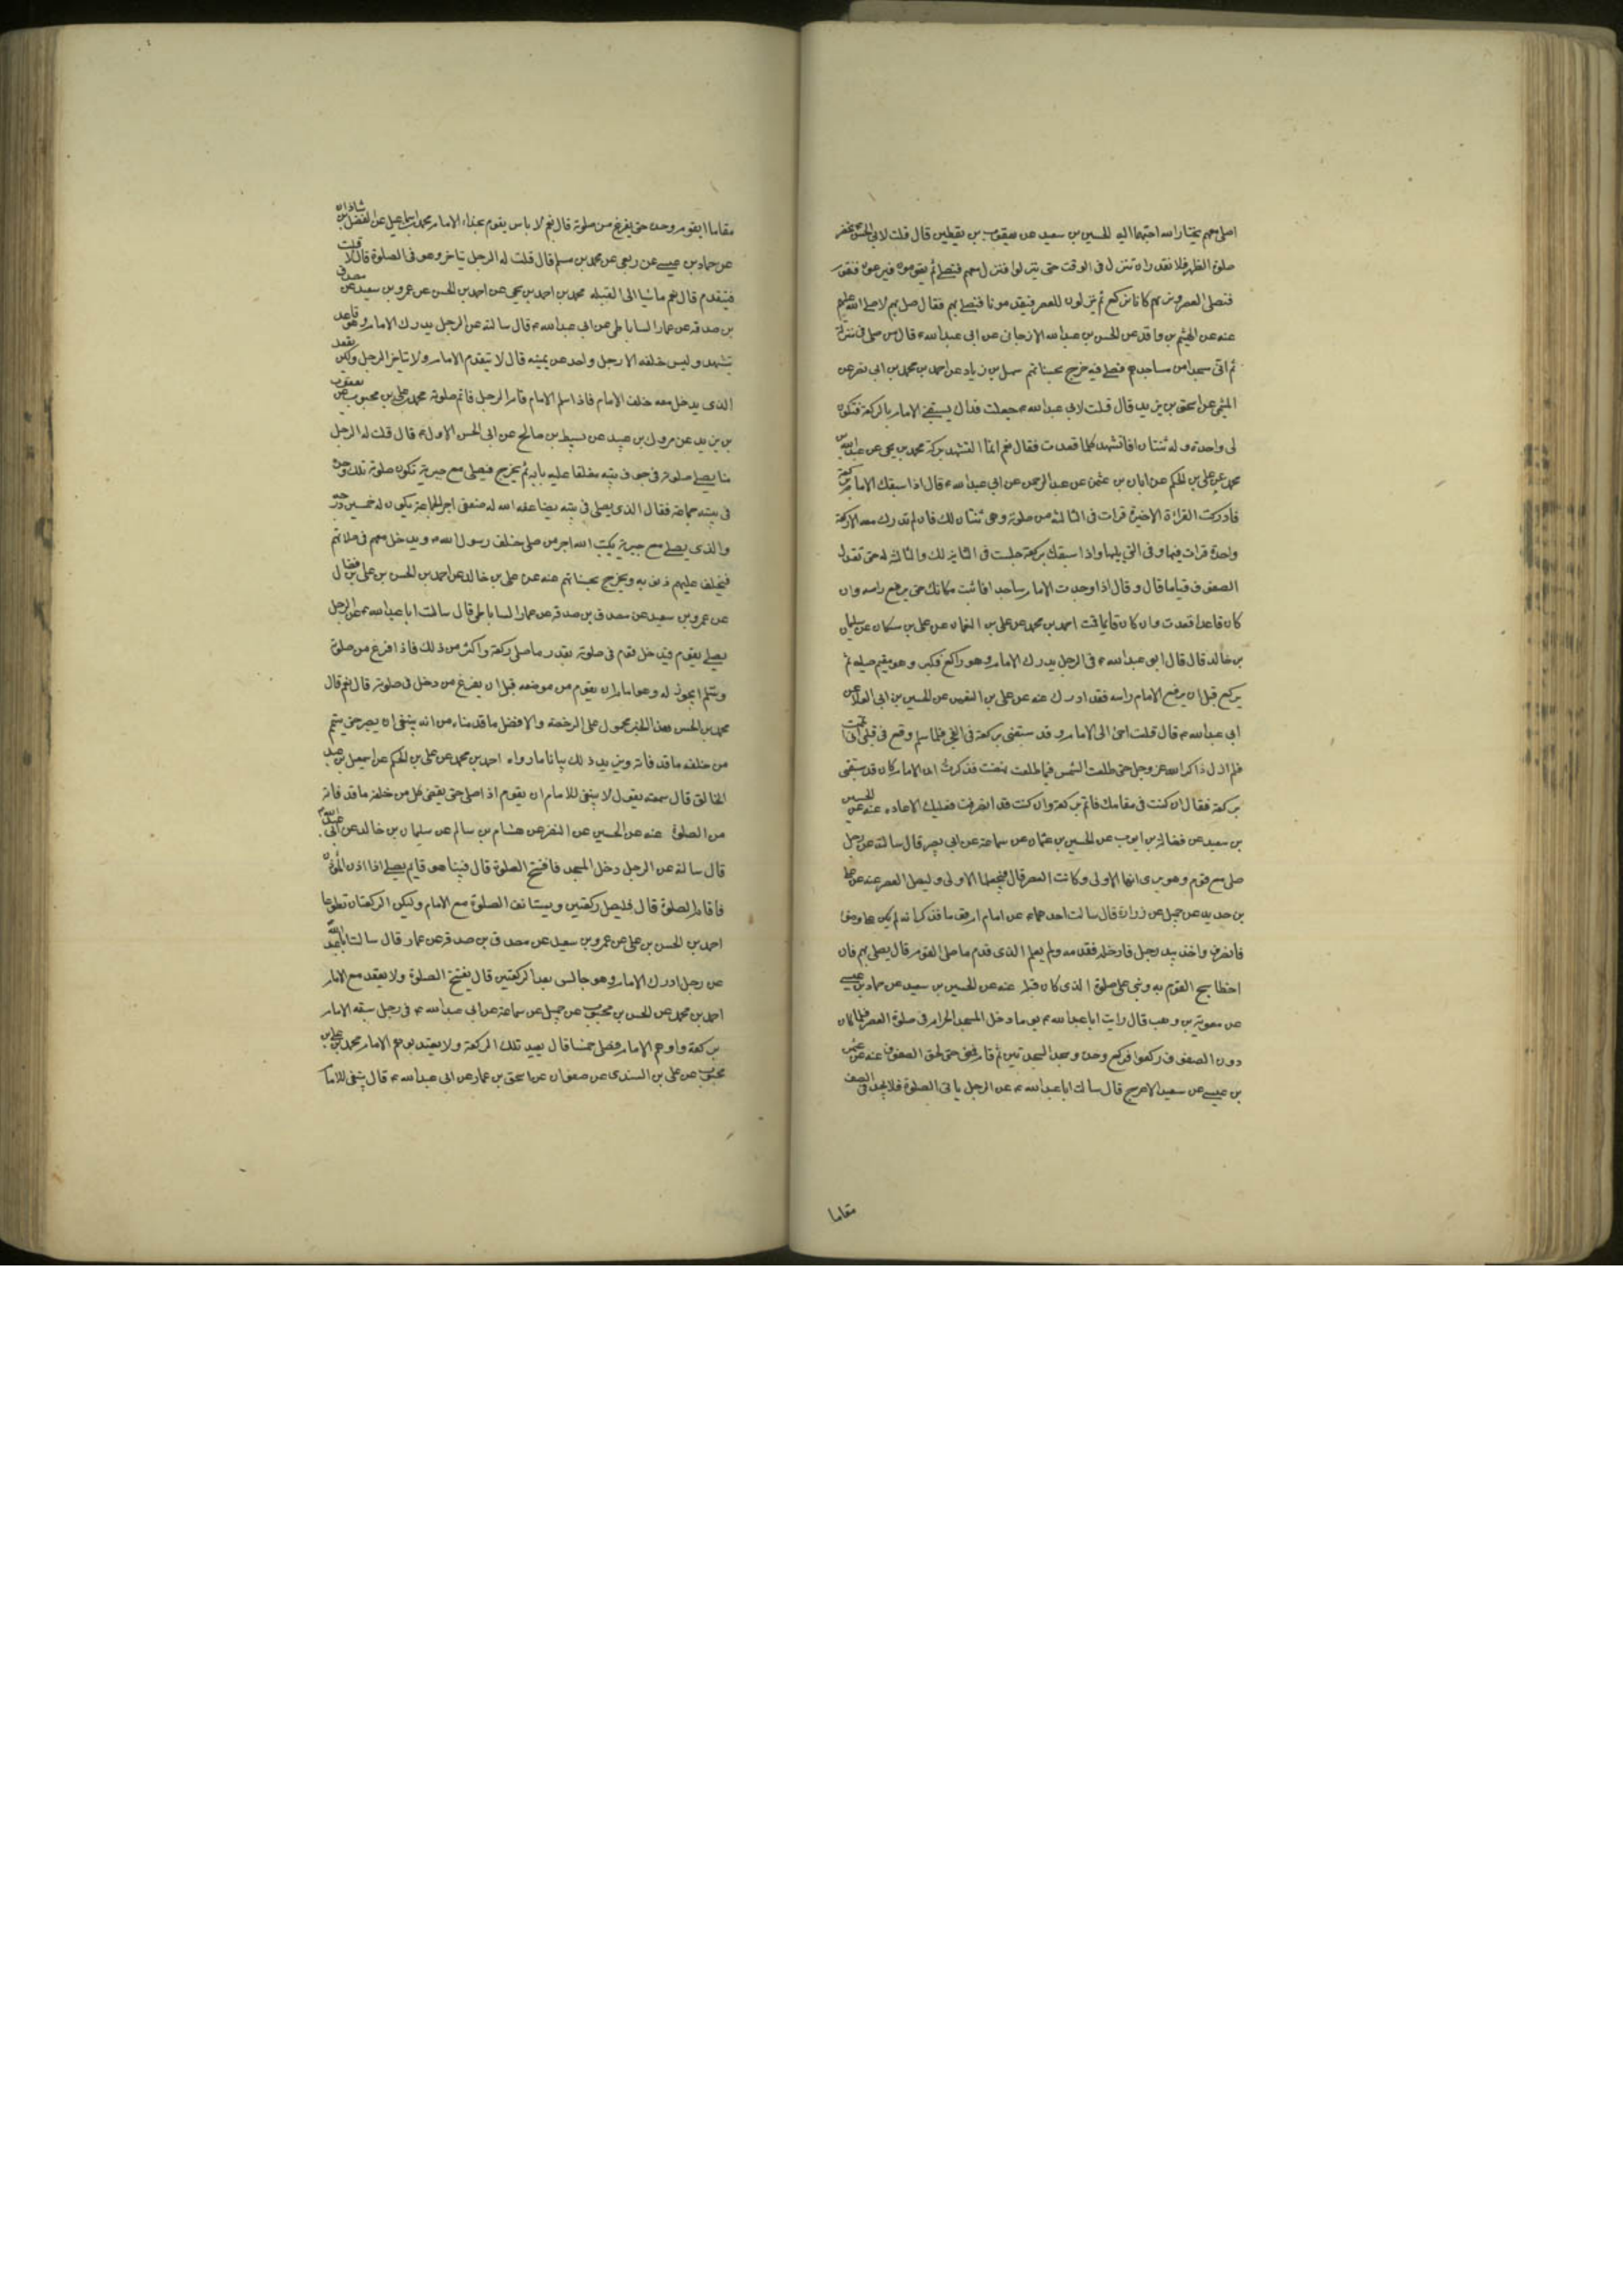 اصلى معهم يختار الله احبهما اليه الحسين بن سعيد عن يعقوب بن يقطين قال قلت لابى الحسن تحضر
صلوة الظهر فلا نقدر ان ننزل فى الوقت حتى ينزلوا فننزل معهم فنصلى ثم يقومون فيسرعون فنقوم
فنصلى العصر ونريهم كانا نركع ثم ينزلون للعصر فيقدمونا فنصلى بهم فقال صل بهم لا صلى الله عليهم
عنه عن الهيثم بن واقد عن الحسن بن عبد الله الارجانى عن ابى عبد الله ع قال من صلى فى منزله
ثم اتى مسجدا من مساجدهم فصلى فيه خرج بحسناتهم سهل بن زياد عن احمد بن محمد بن ابى نصر عن
الميثمى عن اسحق بن يزيد قال قلت لابى عبد الله ع جعلت فداك يسبقنى الامام بالركعة فتكون
لى واحدة وله ثنتان افاتشهد كلما قعدت فقال نعم انما التشهد بركة محمد بن يحيى عن عبد الله بن
محمد عن على بن الحكم عن ابان بن عثمن عن عبد الرحمن عن ابى عبد الله ع قال اذا سبقك الامام بركعة
فادركت القراءة الاخيرة قرات فى الثالثة من صلوته وهى ثنتان لك فان لم تدرك معه الا ركعة
واحدة قرات فيها وفى التى يليها واذا سبقك بركعة جلست فى الثانية لك والثالثة له حتى تعتدل
الصفوف قياما قال وقال اذا وجدت الامام ساجدا فاثبت مكانك حتى يرفع راسه وان
كان قاعدا قعدت وان كان قائما قمت احمد بن محمد عن على بن النعمان عن على بن مسكان عن سليمان
بن خالد قال قال ابو عبد الله ع فى الرجل يدرك الامام وهو راكع فكبر وهو مقيم صلبه ثم
يركع قبل ان يرفع الامام راسه فقد ادرك عنه عن على بن النعمن عن الحسين بن ابى العلا عن
ابى عبد الله ع قال قلت اجئ الى الامام وقد سبقنى بركعة فى الفجر فلما سلم وقع فى قلبى انى اتممت
فلم ازل ذاكرا لله عز وجل حتى طلعت الشمس فلما طلعت نهضت فذكرت ان الامام كان قد سبقنى
بركعة فقال ان كنت فى مقامك فاتم بركعة وان كنت قد انصرفت فعليك الاعاده عنه عن الحسين
بن سعيد عن فضالة بن ايوب عن الحسين بن عثمان عن سماعة عن ابى بصير قال سالته عن رجل
صلى مع قوم وهو يرى انها الاولى وكانت العصر قال فليجعلها الاولى وليصل العصر عنه عن على
بن حديد عن جميل عن زرارة قال سالت احدهما ع عن امام ام قوما فذكر انه لم يكن على وضوء
فانصرف واخذ بيد رجل فادخله فقدمه ولم يعلم الذى قدم ما صلى القوم قال يصلى بهم فان
اخطا سبح القوم به وبنى على صلوة الذى كان قبله عنه عن الحسين بن سعيد عن حماد بن عيسى
عن معوية بن وهب قال رايت ابا عبد الله ع يوما دخل المسجد الحرام فى صلوة العصر فلما كان
دون الصفوف ركعوا فركع وحده وسجد السجدتين ثم قام فمضى حتى لحق الصفوف عنه عن عثمن
بن عيسى عن سعيد الاعرج قال سالت ابا عبد الله ع عن الرجل ياتى الصلوة فلا يجد فى الصف
مقاما
مقاما ايقوم وحده حتى يفرغ من صلوته قال نعم لا باس يقوم بحذاء الامام محمد بن اسماعيل عن الفضل بن شاذان
عن حماد بن عيسى عن ربعى عن محمد بن مسلم قال قلت له الرجل يتاخر وهو فى الصلوة قال لا قلت
فيتقدم قال نعم ماشيا الى القبله محمد بن احمد بن يحيى عن احمد بن الحسن عن عمرو بن سعيد عن مصدق
بن صدقه عن عمار الساباطى عن ابى عبد الله ع قال سالته عن الرجل يدرك الامام وهو قاعد
يتشهد وليس خلفه الا رجل واحد عن يمينه قال لا يتقدم الامام ولا يتاخر الرجل ولكن يقعد
الذى يدخل معه خلف الامام فاذا سلم الامام قام الرجل فاتم صلوته محمد بن على بن محبوب عن يعقوب
بن يزيد عن مروك بن عبيد عن نشيط بن صالح عن ابى الحسن الاول ع قال قلت له الرجل
منا يصلى صلوته فى جوف بيته مغلقا عليه بابه ثم يخرج فيصلى مع جيرته تكون صلوته تلك وحده
فى بيته جماعة فقال الذى يصلى فى بيته يضاعفه الله له ضعفى اجر الجماعة يكون له خمسين درجة
والذى يصلى مع جيرته يكتب الله اجر من صلى خلف رسول الله ص ويدخل معهم فى صلاتهم
فيخلف عليهم ذنوبه ويخرج بحسناتهم عنه عن على بن خالد عن احمد بن الحسن بن على بن فضال
عن عمرو بن سعيد عن مصدق بن صدقه عن عمار الساباطى قال سالت ابا عبد الله ع عن الرجل
يصلى بقوم فيدخل قوم فى صلوته بقدر ما صلى ركعة واكثر من ذلك فاذا فرغ من صلوته
وسلم ايجوز له وهو امام ان يقوم من موضعه قبل ان يفرغ من دخل فى صلوته قال نعم قال
محمد بن الحسن هذا الخبر محمول على الرخصة والافضل ما قدمناه من انه ينبغى ان يصبر حتى يتم
من خلفه ما قد فاته ويزيد ذلك بيانا ما رواه احمد بن محمد عن على بن الحكم عن اسمعيل بن عبد
الخالق قال سمعته يقول لا ينبغى للامام ان يقوم اذا صلى حتى يقضى كل من خلفه ما قد فاته
من الصلوة عنه عن الحسين عن النضر عن هشام بن سالم عن سليمان بن خالد عن ابى عبد الله ع
قال سالته عن الرجل دخل المسجد فافتتح الصلوة قال فبينا هو قايم يصلى اذا اذن المؤذن
فاقام الصلوة قال فليصل ركعتين ويستانف الصلوة مع الامام وليكن الركعتان تطوعا
احمد بن الحسن بن على عن عمرو بن سعيد عن مصدق بن صدقه عن عمار قال سالت ابا عبد الله
عن رجل ادرك الامام وهو جالس بعد الركعتين قال يفتتح الصلوة ولا يقعد مع الامام
احمد بن محمد عن الحسن بن محبوب عن جميل عن سماعة عن ابى عبد الله ع فى رجل سبقه الامام
بركعة واوهم الامام فصلى خمسا قال يعيد تلك الركعة ولا يعتد بوهم الامام محمد بن على بن
محبوب عن على بن السندى عن صفوان عن اسحق بن عمار عن ابى عبد الله ع قال ينبغى للامام